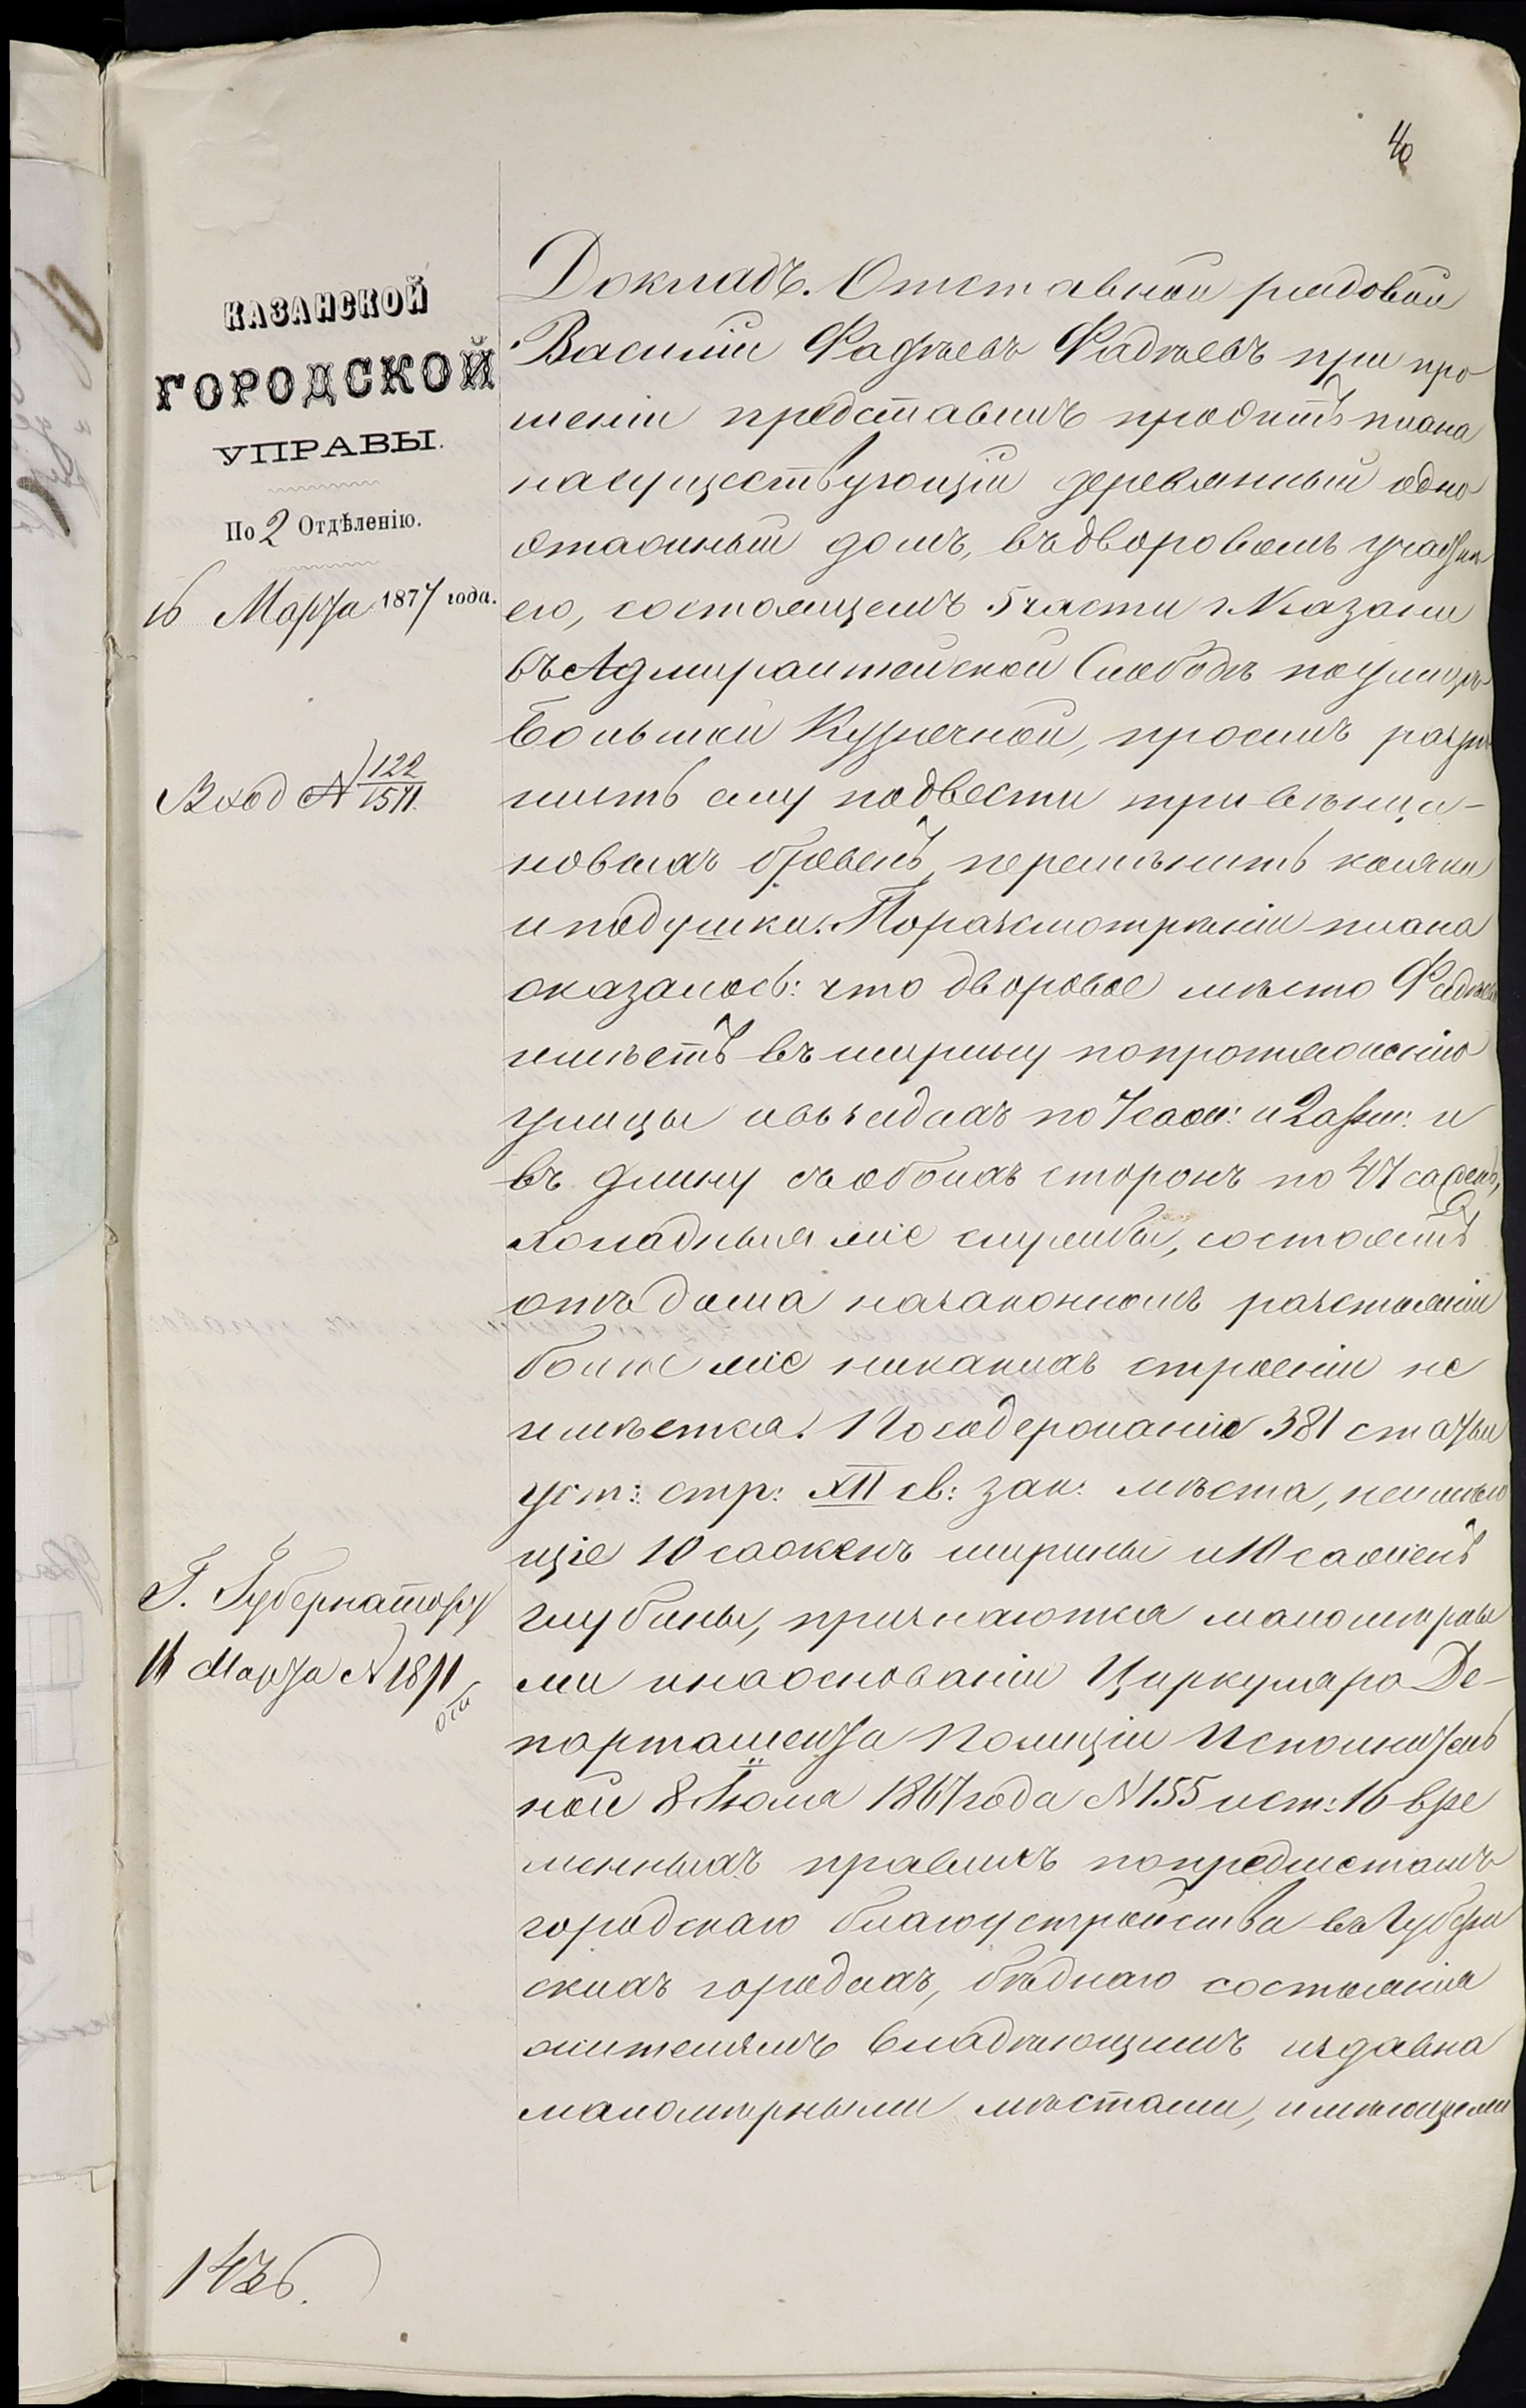 40
КАЗАНСКОЙ
ГОРОДСКОЙ
УПРАВЫ.
По 2 Отдѣленію.
16 Марта 1877 года.
Вход №122/1571.
Докладъ. Отставной рядовой
Василій Фадѣевъ Фадѣевъ при про
шеніи представилъ проэктъ плана
на существующій деревянный одно
этажный домъ, въ дворовомъ участкѣ
его, состоящемъ 5 части г. Казани
въ Адмиралтейской Слободѣ по улицѣ
Большой Кузнечной, проситъ разрѣ
шить ему подвести три вѣнца-
новыхъ бревенъ, перемѣнить косяки
и подушки. По разсмотреніи плана
оказалось: что дворовое мѣсто Фадѣева
имѣетъ въ ширину по протяженію
улицы и въ задахъ по 7 саж: и 2 арш: и
въ длину съ обоихъ сторонъ по 47 сажень,
холадныя же службы, состоятъ
отъ дома на законномъ разстояніи
болѣе же никакихъ строеній не
имѣется. По содержанію 381 статьи
уст: стр: XII св: зак: мѣста, неимѣю
щіе 10 саженъ ширины и 10 саженъ
глубины, признаются маломѣрны
ми и на основаніи Циркуляра Де-
партамента Полиціи Исполнитель
ной 8 Іюля 1867 года №155 и ст: 16 вре
менныхъ правилъ по предметамъ
городскаго благоустройства въ Губерн
скихъ городахъ, бѣднаго состоянія
жителямъ владѣющимъ издавна
маломѣрными мѣстами, имѣющими
Г. Губернатору
Марта № 1871
1436.